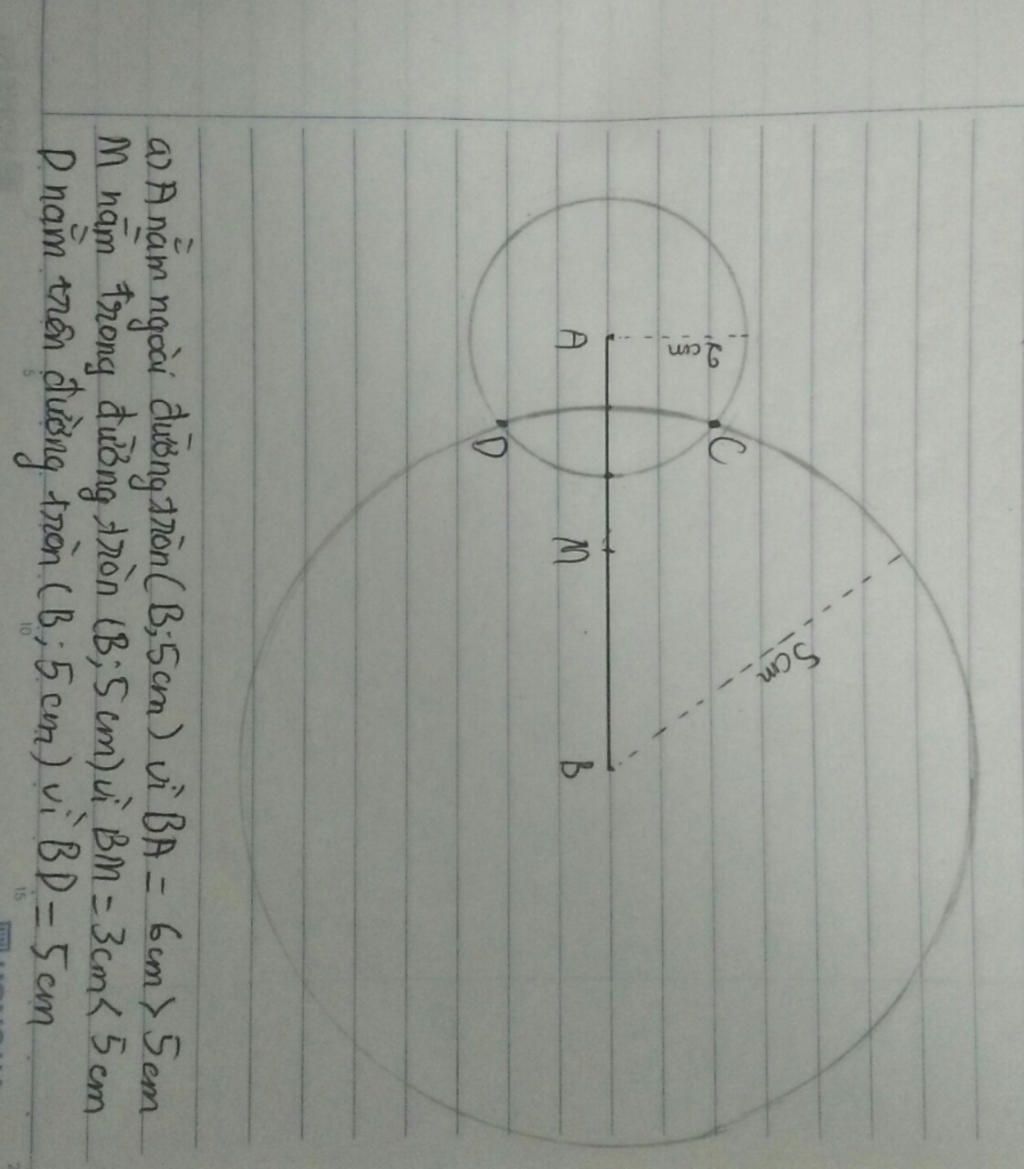 2 cm
A
C
D
M
5cm
B
a) A nằm ngoài đường tròn (B; 5cm) vì BA = 6cm > 5cm
M nằm trong đường tròn (B; 5cm) vì BM = 3cm < 5cm
D nằm trên đường tròn (B; 5cm) vì BD = 5cm
5
10
15